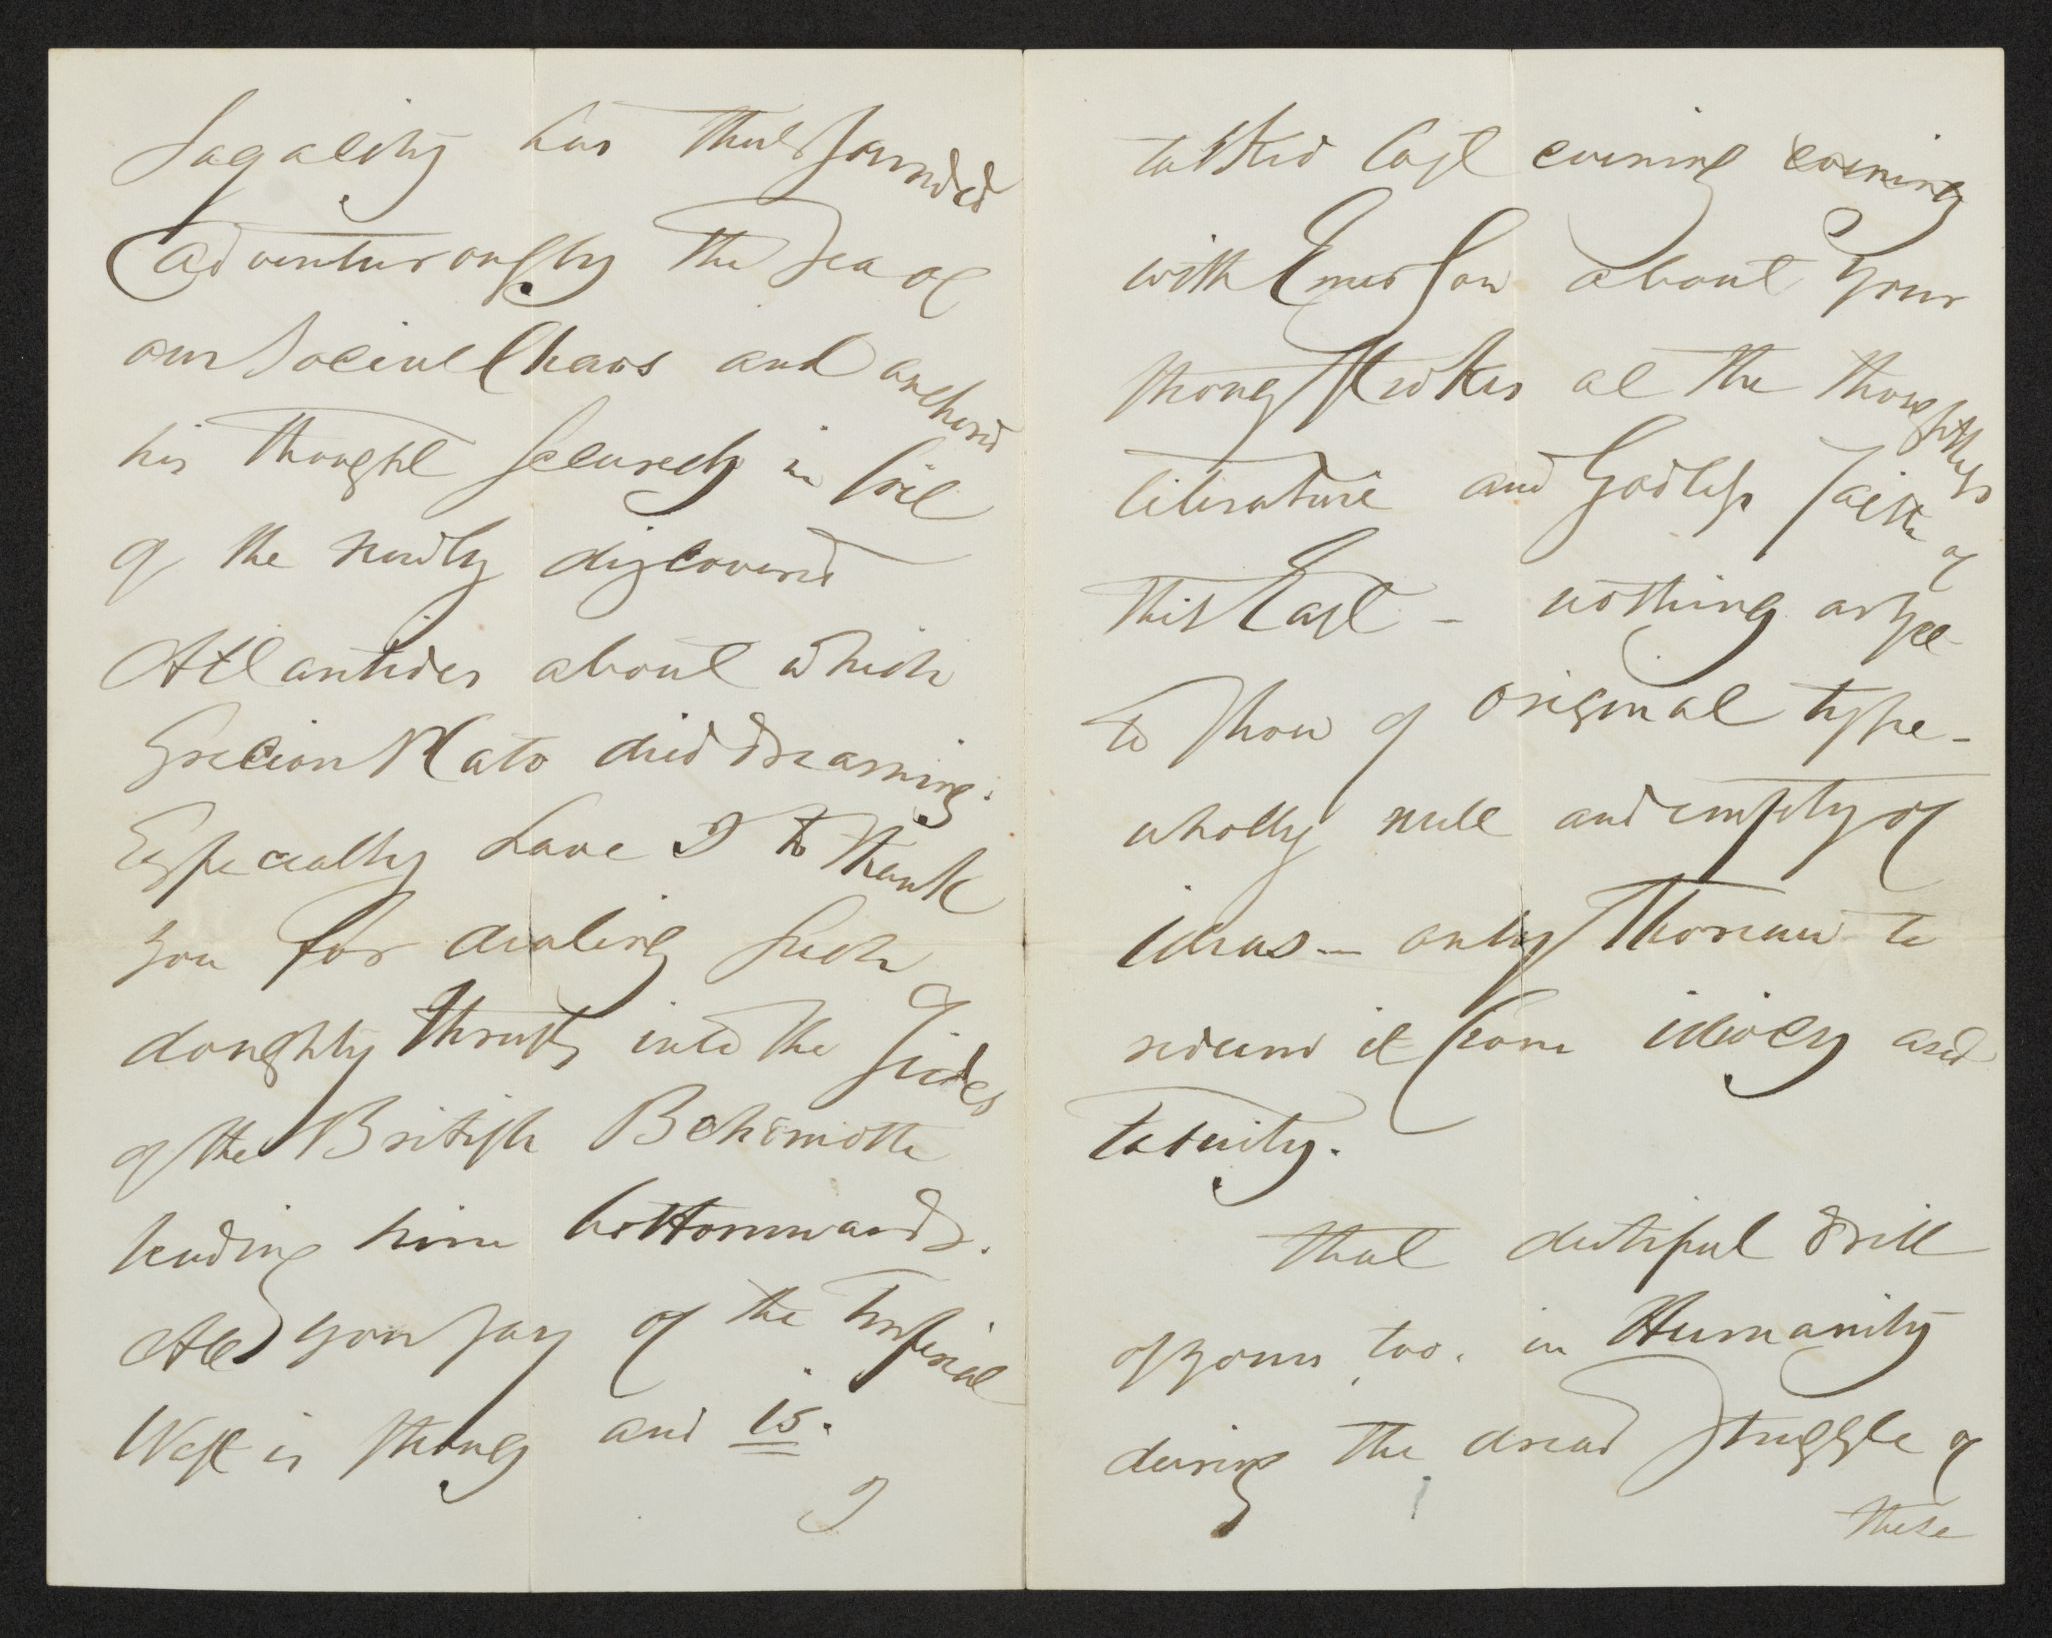 Sagacity has thus sounded
adventurously the Sea of
our Social Chaos and anchored
his thought securely in soil
of the newly discovered
Atlantides about which
Grecian Plato died dreaming.
Especially have I to thank
you for dealing such
doughty thrusts into the sides
of the British Behemoth
sending him bottomwards.
All you say of the Imperial
West is strong and is.
I
talked last evening evening
with Emerson about your
strong strokes at the thoughtless
literature and Godless faith of
this East — nothing as yet
to show of original type —
wholly null and empty of
ideas — only Thoreau to
redeem it from idiocy and
fatuity.
That dutiful drill
of yours, too, in Humanity
during the dread struggle of
these